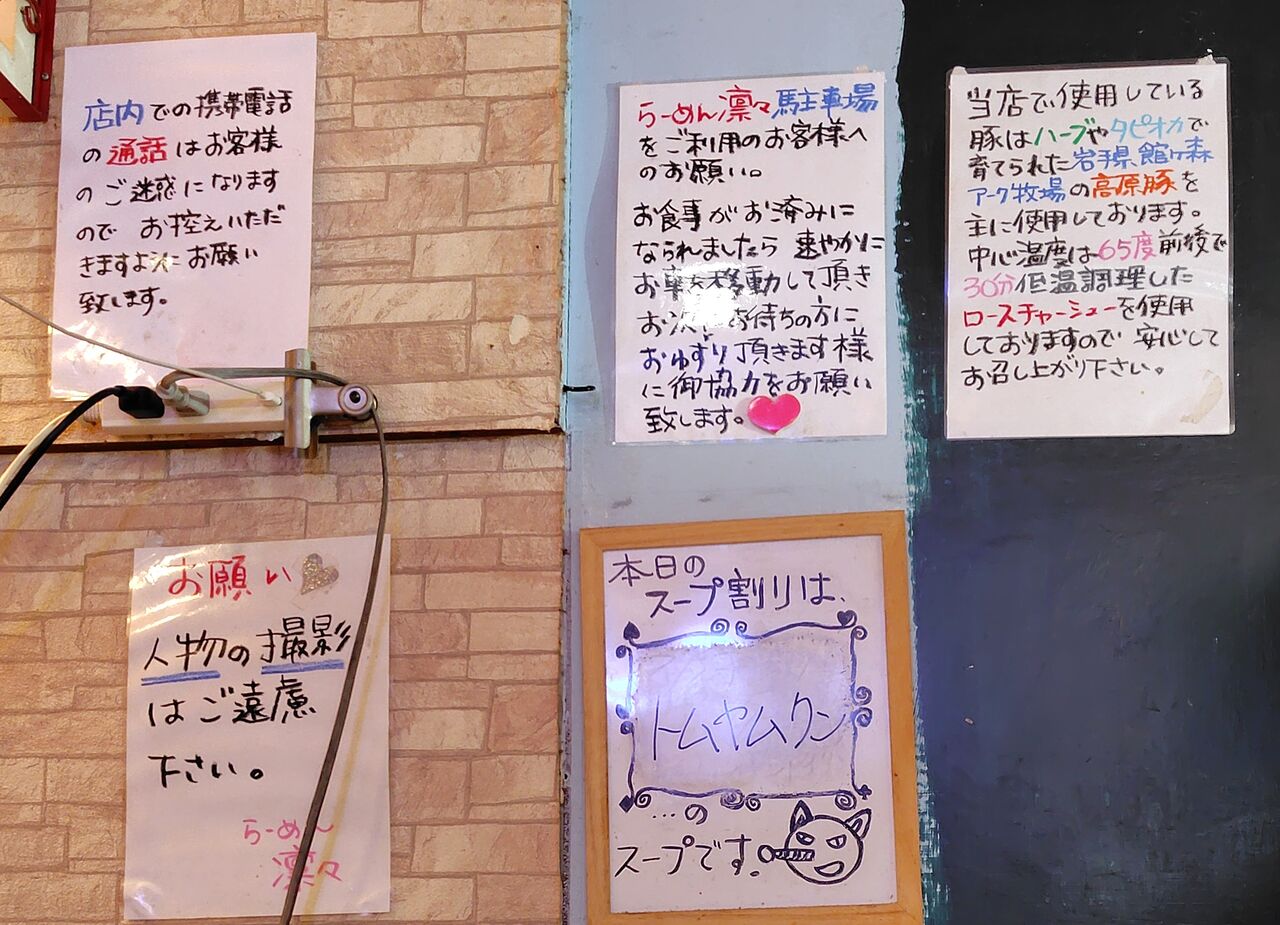 店内での携帯電話
の通話はお客様
のご迷惑になります
ので お控えいただ
きますようにお願い
致します。
らーめん凛々駐車場
をご利用のお客様へ
のお願い。
お食事がお済みに
なられましたら 速やかに
お車を移動して頂き
お次にお待ちの方に
おゆずり頂きます様
に御協力をお願い
致します。
当店で使用している
豚はハーブやタピオカで
育てられた岩手県館ヶ森
アーク牧場の高原豚を
主に使用しております。
中心温度は65度前後で
30分低温調理した
ロースチャーシューを使用
しておりますので 安心して
お召し上がり下さい。
お願い
人物の撮影
はご遠慮
下さい。
らーめん
凛々
本日の
スープ割りは、
トムヤムクン
…の
スープです.